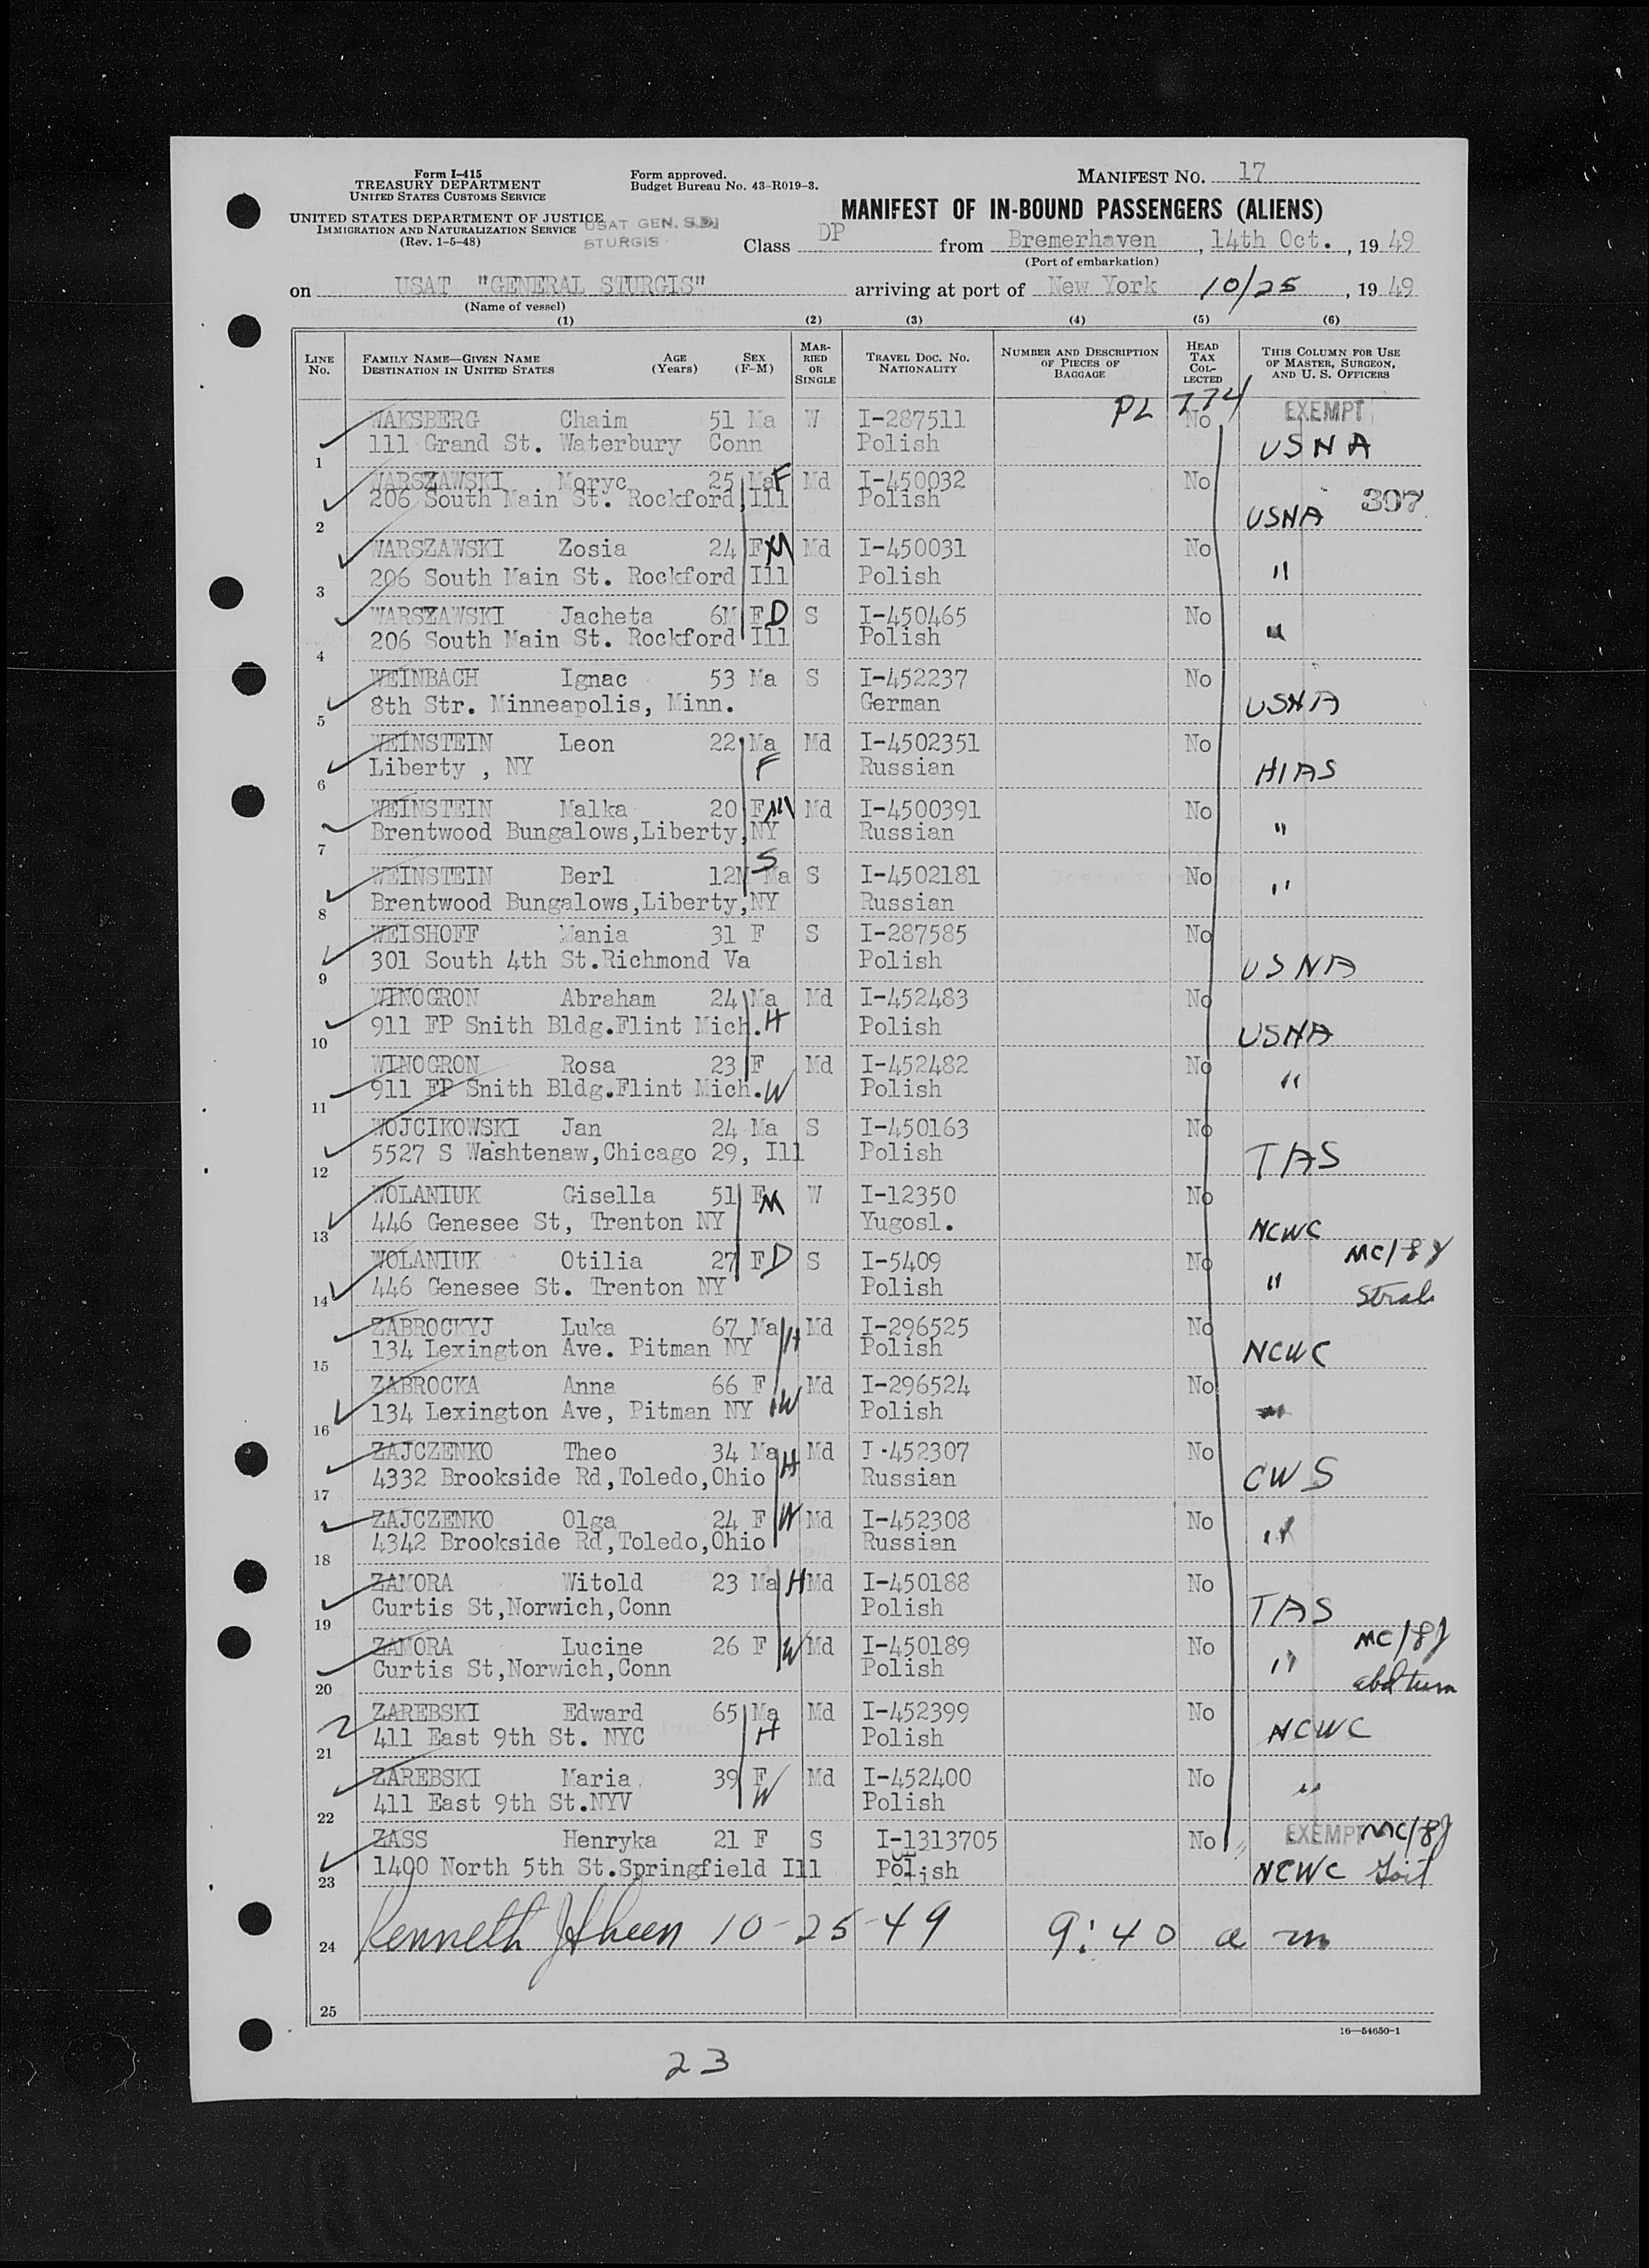 Form I-415
TREASURY DEPARTMENT
UNITED STATES CUSTOMS SERVICE
UNITED STATES DEPARTMENT OF JUSTICE
IMMIGRATION AND NATURALIZATION SERVICE
(Rev. 1-5-48)
USAT GEN. S.D.
STURGIS
Form approved.
Budget Bureau No. 43-R019-3.
MANIFEST NO. 17
MANIFEST OF IN-BOUND PASSENGERS (ALIENS)
Class DP from Bremerhaven, 14th Oct., 19 49
(Port of embarkation)
on USAT "GENERAL STURGIS" arriving at port of New York 10/25, 19 49
(Name of vessel)
(1) (2) (3) (4) (5) (6)
LINE No. FAMILY NAME—GIVEN NAME DESTINATION IN UNITED STATES AGE (Years) SEX (F-M) MARRIED OR SINGLE TRAVEL DOC. NO. NATIONALITY NUMBER AND DESCRIPTION OF PIECES OF BAGGAGE HEAD TAX COLLECTED THIS COLUMN FOR USE OF MASTER, SURGEON, AND U. S. OFFICERS
PL 774
WAKSBERG Chaim 51 Ma W I-287511 No EXEMPT
1 111 Grand St. Waterbury Conn Polish USNA
WARSZAWSKI Moryc 25 Ma F Md I-450032 No
2 206 South Main St. Rockford, Ill Polish USNA 307
WARSZAWSKI Zosia 24 F M Md I-450031 No
3 206 South Main St. Rockford Ill Polish "
WARSZAWSKI Jacheta 6M F D S I-450465 No
4 206 South Main St. Rockford Ill Polish "
WEINBACH Ignac 53 Ma S I-452237 No
5 8th Str. Minneapolis, Minn. German USNA
WEINSTEIN Leon 22 Ma Md I-4502351 No
6 Liberty , NY F Russian HIAS
WEINSTEIN Malka 20 F M Md I-4500391 No
7 Brentwood Bungalows,Liberty,NY Russian "
WEINSTEIN Berl 12M S Ma S I-4502181 No
8 Brentwood Bungalows,Liberty,NY Russian "
WEISHOFF Mania 31 F S I-287585 No
9 301 South 4th St.Richmond Va Polish USNA
WINOGRON Abraham 24 Ma Md I-452483 No
10 911 FP Snith Bldg.Flint Mich. H Polish USNA
WINOGRON Rosa 23 F Md I-452482 No
11 911 FP Snith Bldg.Flint Mich. W Polish "
WOJCIKOWSKI Jan 24 Ma S I-450163 No
12 5527 S Washtenaw,Chicago 29, Ill Polish TAS
WOLANIUK Gisella 51 F M W I-12350 No
13 446 Genesee St, Trenton NY Yugosl. NCWC
WOLANIUK Otilia 27 F D S I-5409 No MC/8J
14 446 Genesee St. Trenton NY Polish " Strab
ZABROCKYJ Luka 67 Ma H Md I-296525 No
15 134 Lexington Ave. Pitman NY Polish NCWC
ZABROCKA Anna 66 F W Md I-296524 No
16 134 Lexington Ave, Pitman NY Polish "
ZAJCZENKO Theo 34 Ma H Md I-452307 No
17 4332 Brookside Rd,Toledo,Ohio Russian CWS
ZAJCZENKO Olga 24 F W Md I-452308 No
18 4342 Brookside Rd,Toledo,Ohio Russian "
ZAMORA Witold 23 Ma H Md I-450188 No
19 Curtis St,Norwich,Conn Polish TAS
ZAMORA Lucine 26 F W Md I-450189 No MC/8J
20 Curtis St,Norwich,Conn Polish " abd tum
ZAREBSKI Edward 65 Ma Md I-452399 No
21 411 East 9th St. NYC H Polish NCWC
ZAREBSKI Maria 39 F Md I-452400 No
22 411 East 9th St.NYV W Polish "
ZASS Henryka 21 F S I-1313705 No EXEMPT MC/8J
23 1400 North 5th St.Springfield Ill Polish NCWC Goit
24 Kenneth 10-25-49 9:40 a m
25
16—54650-1
23